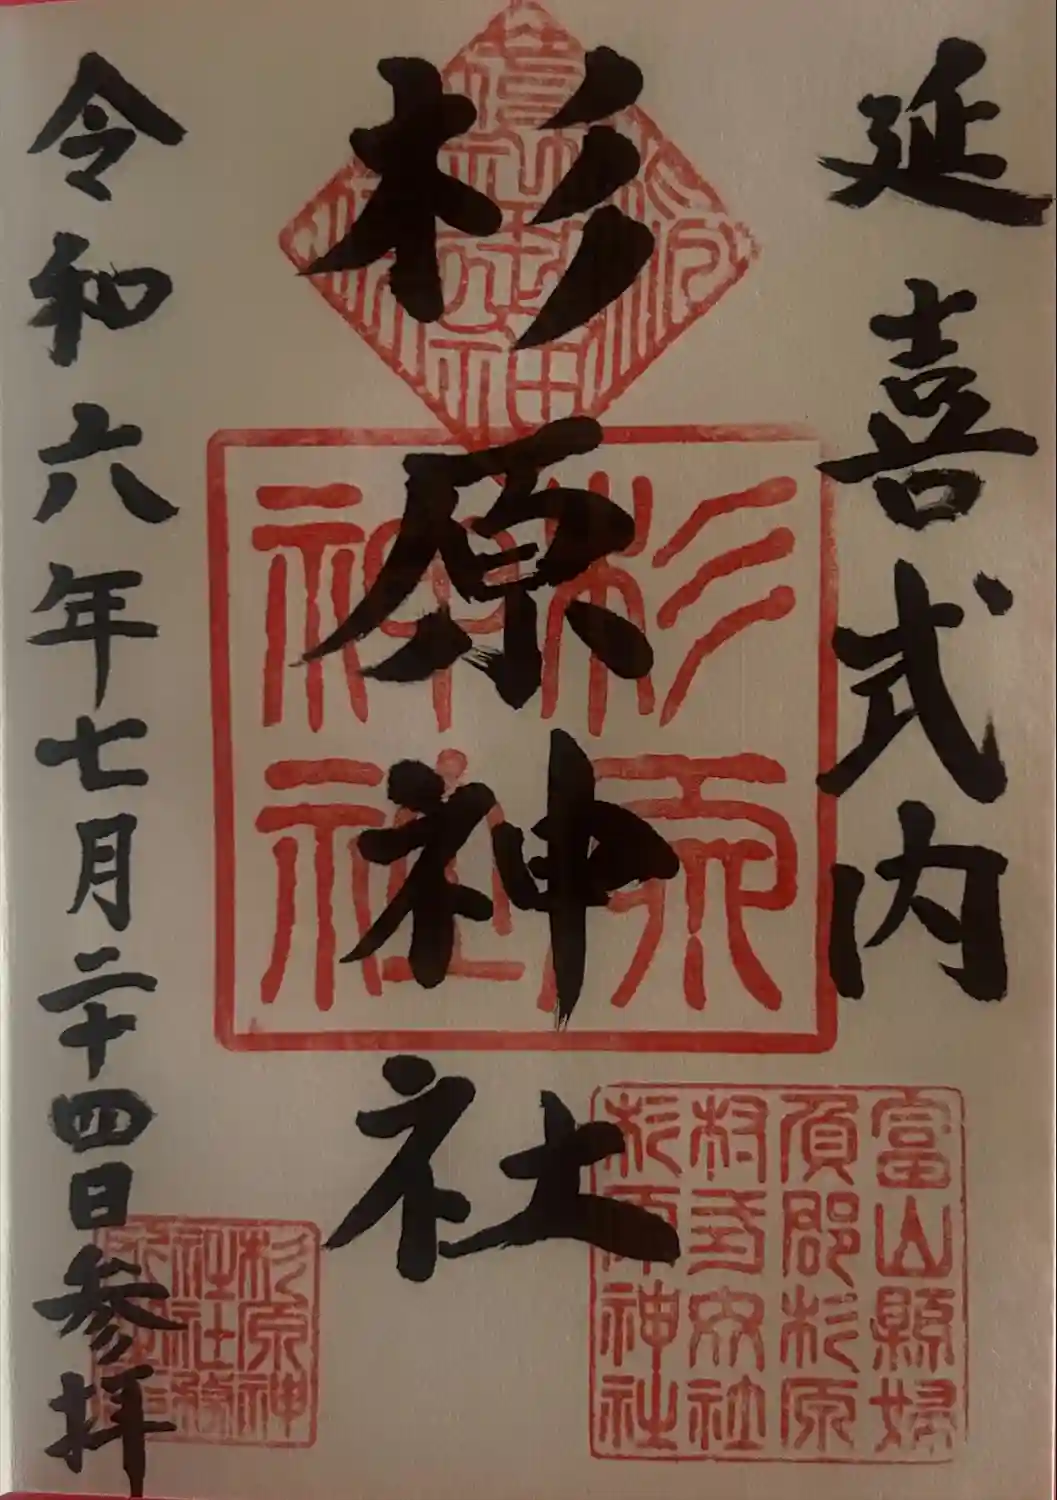 延喜式内
杉原神社
令和六年七月二十四日参拝
杉原
神社
富山縣婦
負郡杉原
杉原神社
杉原神